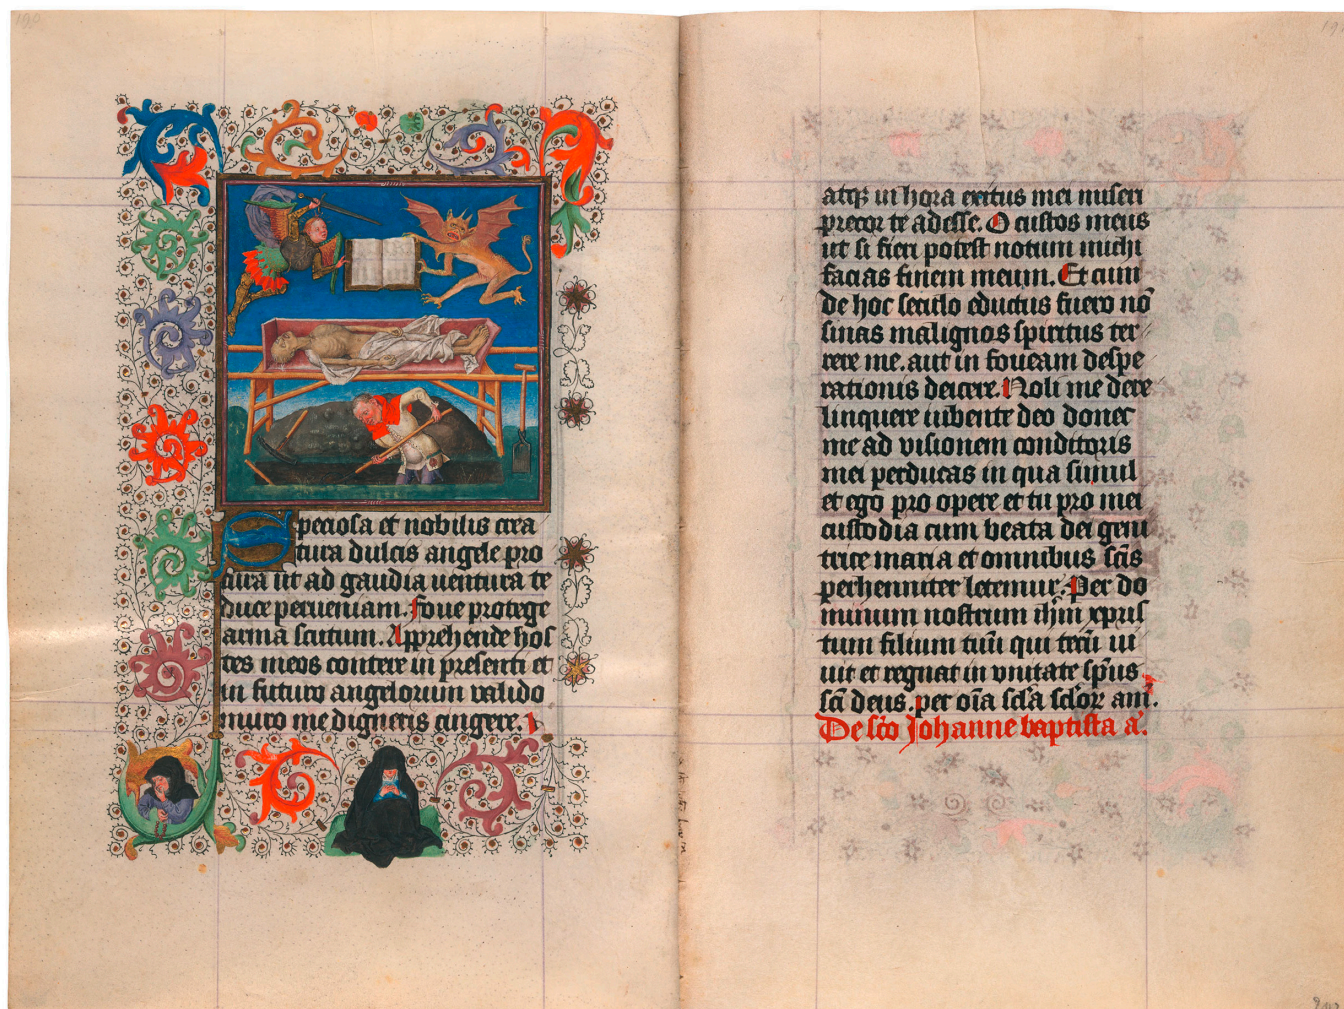 190
Speciosa et nobilis crea
tura dulcis angele pro
cura ut ad gaudia uentura te
duce perueniam. Foue protege
arma scutum. Apprehende hos
tes meos contere in presenti et
in futuro angelorum valido
muro me digneris cingere. I
atqꝫ in hora exitus mei miseri
precor te adesse. O custos meus
ut si fieri potest notum michi
facias finem meum. Et cum
de hoc seculo eductus fuero nō
sinas malignos spiritus ter
rere me. aut in foueam despe
rationis deicere. Noli me dere
linquere iubente deo donec
me ad visionem conditoris
mei perducas in qua simul
et ego pro opere et tu pro mei
custodia cum beata dei geni
trice maria et omnibus sc̄is
perhenniter letemur. Per do
minum nostrum ih̄m xpris
tum filium tuū qui tecū ui
uit et regnat in vnitate sp̄us
sc̄i deus. per oīa sc̄la sc̄lor am̄.
De sc̄o Johanne baptista a᷑.